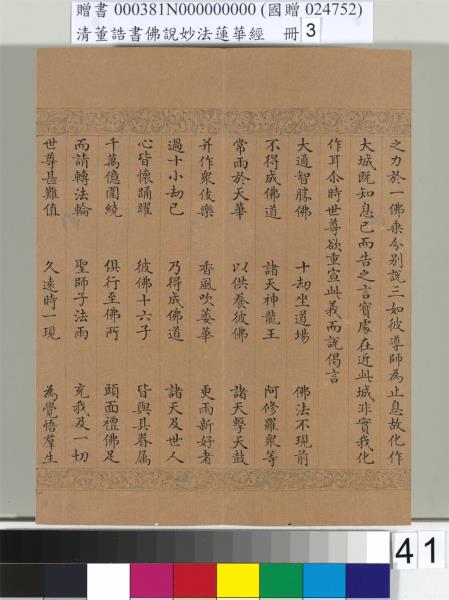 贈書 000381N000000000 (國贈 024752)
清董誥書佛說妙法蓮華經 冊 3
之力於一佛乘分别說三如彼導師為止息故化作
大城既知息已而告之言寶處在近此城非實我化
作耳尒時世尊欲重宣此義而說偈言
大通智勝佛 十劫坐道場 佛法不現前
不得成佛道 諸天神龍王 阿修羅眾等
常雨於天華 以供養彼佛 諸天擊天鼓
并作眾伎樂 香風吹萎華 更雨新好者
過十小劫已 乃得成佛道 諸天及世人
心皆懷踊躍 彼佛十六子 皆與其眷屬
千萬億圍繞 俱行至佛所 頭面禮佛足
而請轉法輪 聖師子法雨 充我及一切
世尊甚難值 久遠時一現 為覺悟羣生
41